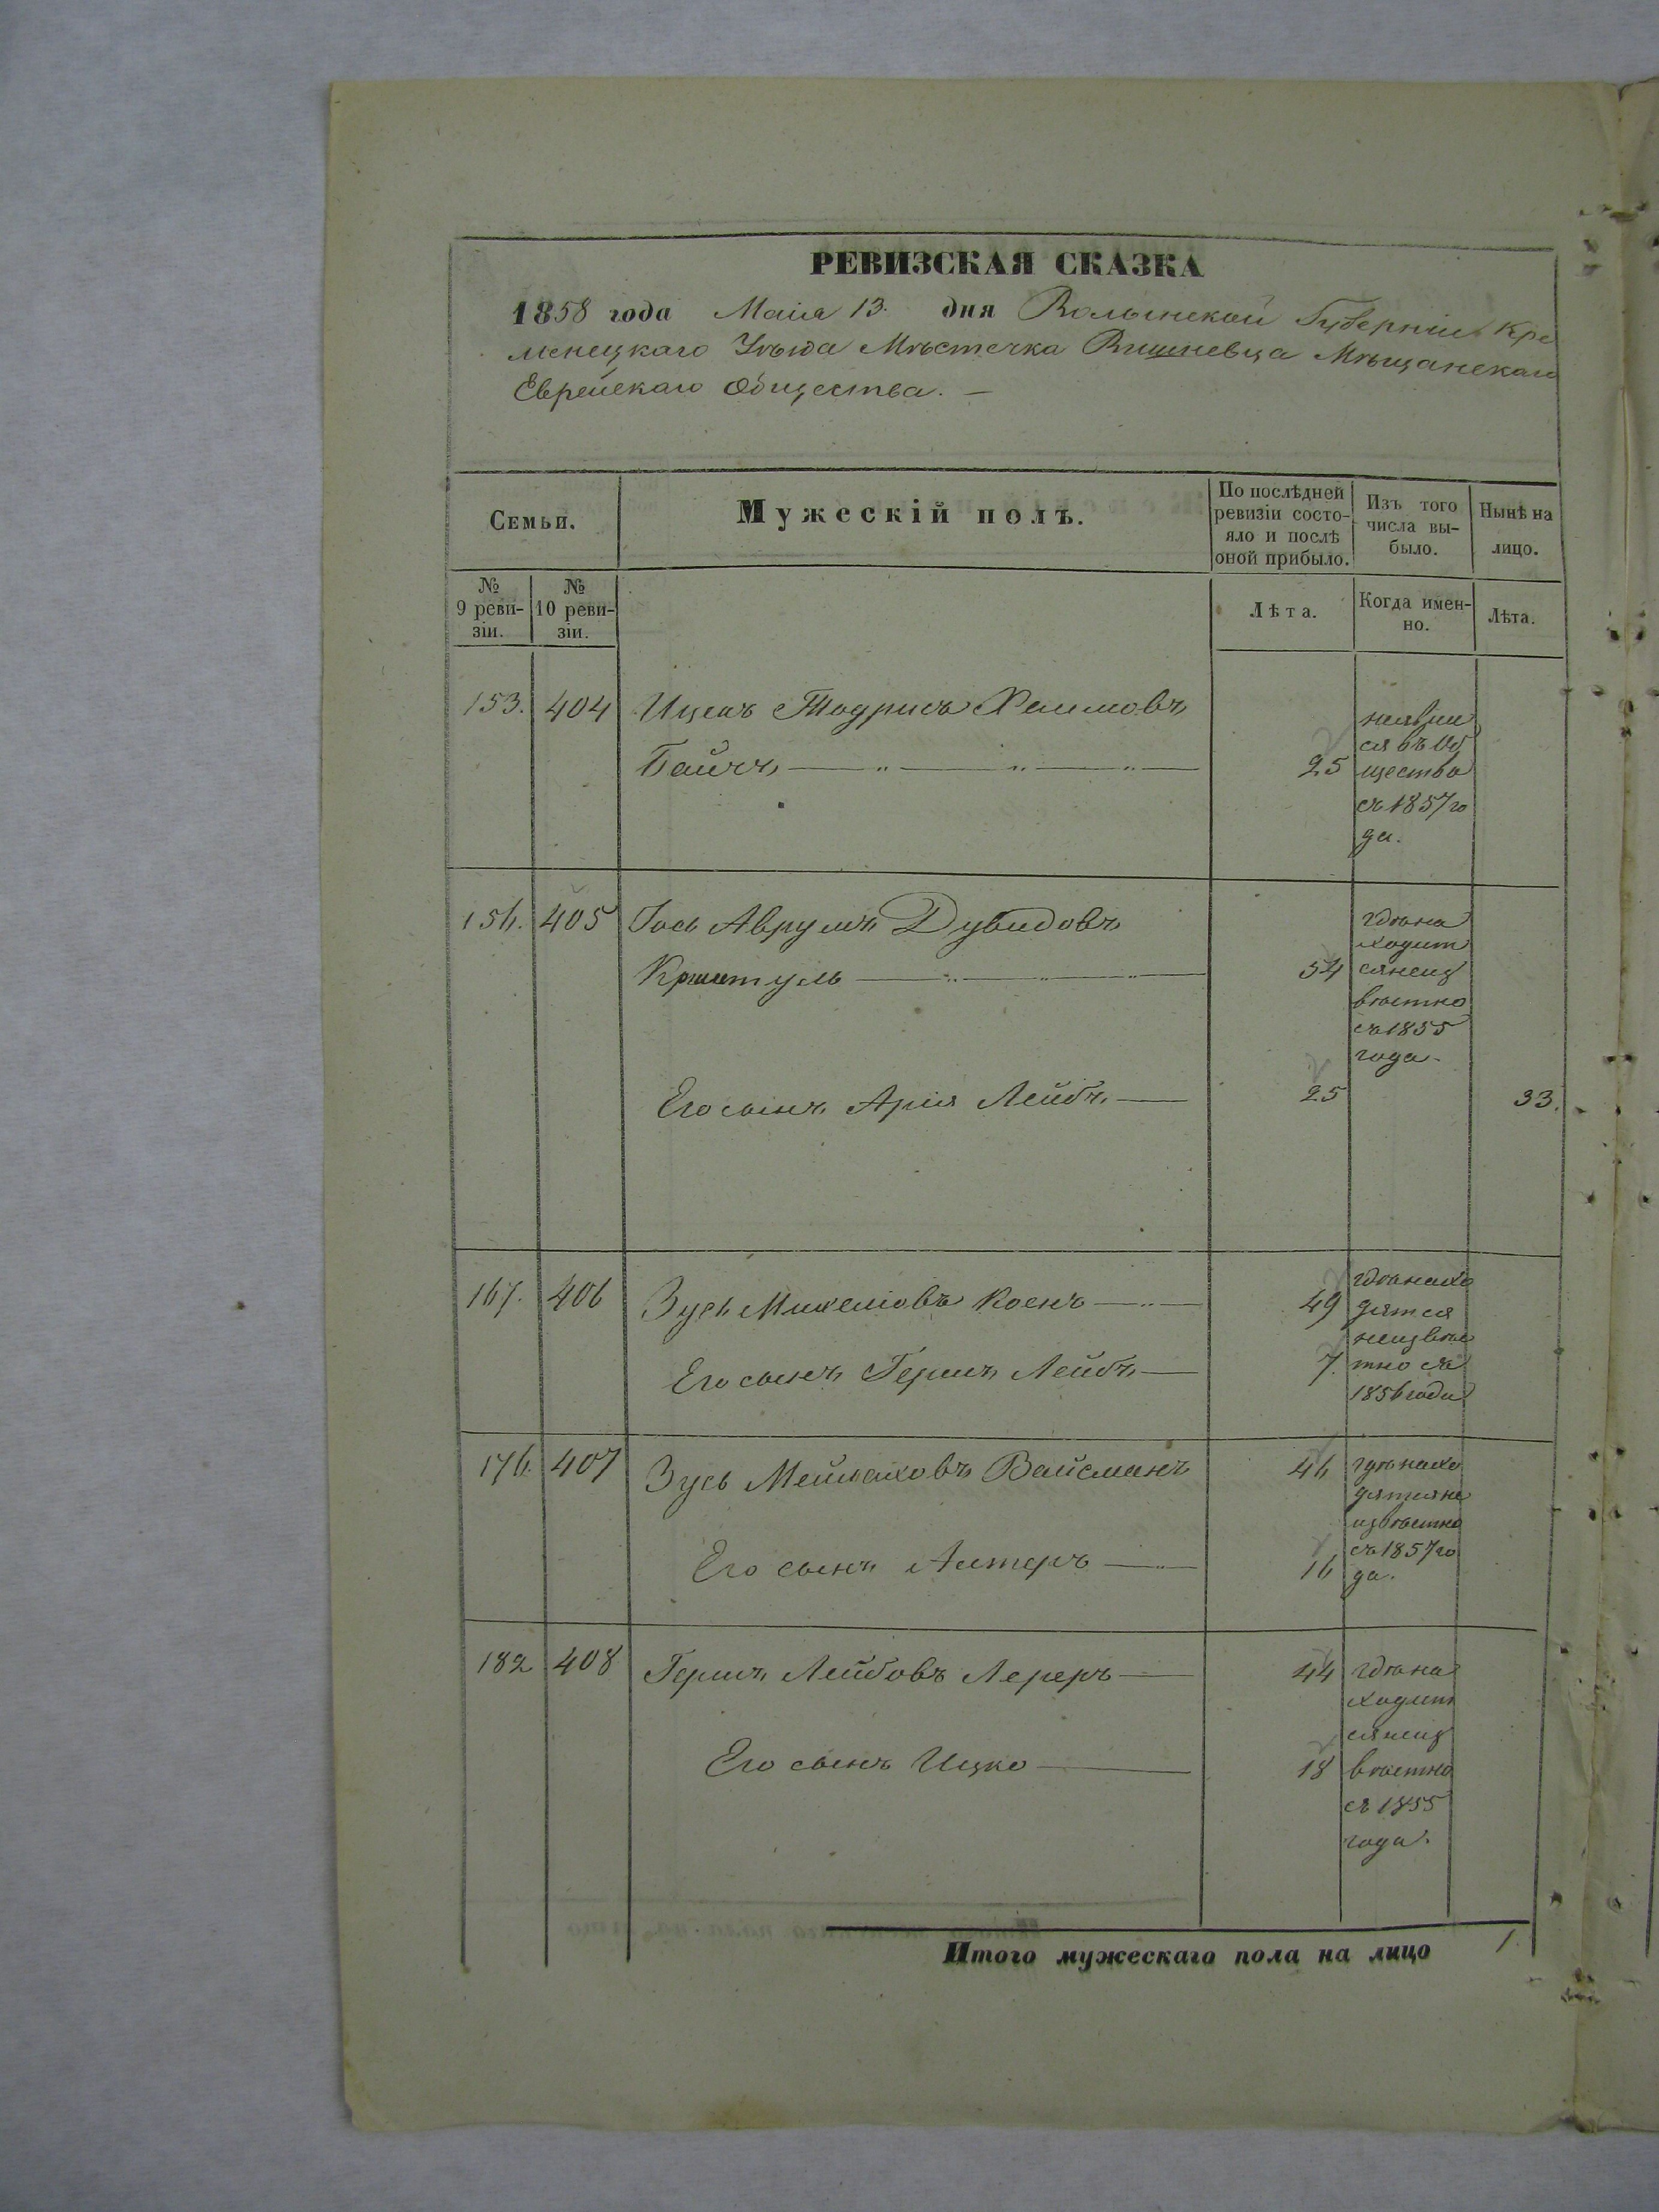 РЕВИЗСКАЯ СКАЗКА
1858 года Маія 13. дня Волынской Губерніи Кре
менецкаго Уѣзда Мѣстечка Вишневца Мѣщанскаго
Еврейскаго Общества. —
Семьи.
Мужескій полъ.
По послѣдней
ревизіи состо-
яло и послѣ
оной прибыло.
Изъ того
числа вы-
было.
Нынѣ на
лицо.
№
9 реви-
зіи.
№
10 реви-
зіи.
Лѣта.
Когда имен-
но.
Лѣта.
153. 404 Ицекъ Тодрисъ Хаимовъ
Байчъ 25
неявил
ся въ Об
щество
съ 1857 го
да.
154. 405 Іось Аврумъ Дувидовъ
Криштуль 54
гдѣ на
ходит
ся неиз
вѣстно
съ 1855
года.
Его сынъ Арія Лейбъ 25 33.
167. 406 Зусь Михелювъ Коенъ 49
Его сынъ Гершъ Лейбъ 7.
гдѣ нахо
дятся
неизвѣс
тно съ
1856 года
176. 407 Зусь Мейлаховъ Вайсманъ 46
Его сынъ Алтеръ 16
гдѣ нахо
дятся не
извѣстно
съ 1857 го
да.
182 408 Гершъ Лейбовъ Лереръ 44
Его сынъ Ицко 18
гдѣ на
ходит
ся неиз
вѣстно
съ 1855
года.
Итого мужескаго пола на лицо 1.